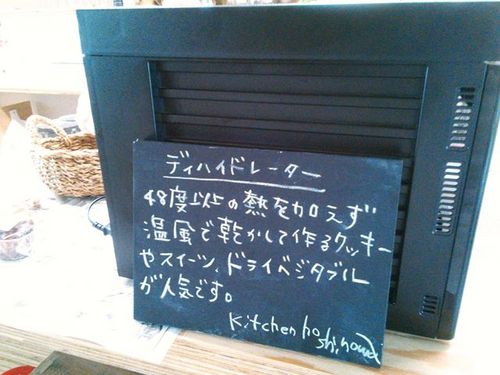 ディハイドレーター
48度以上の熱を加えず
温風で乾かして作るクッキー
やスイーツ、ドライベジタブル
が人気です。
Kitchen hoshinowa